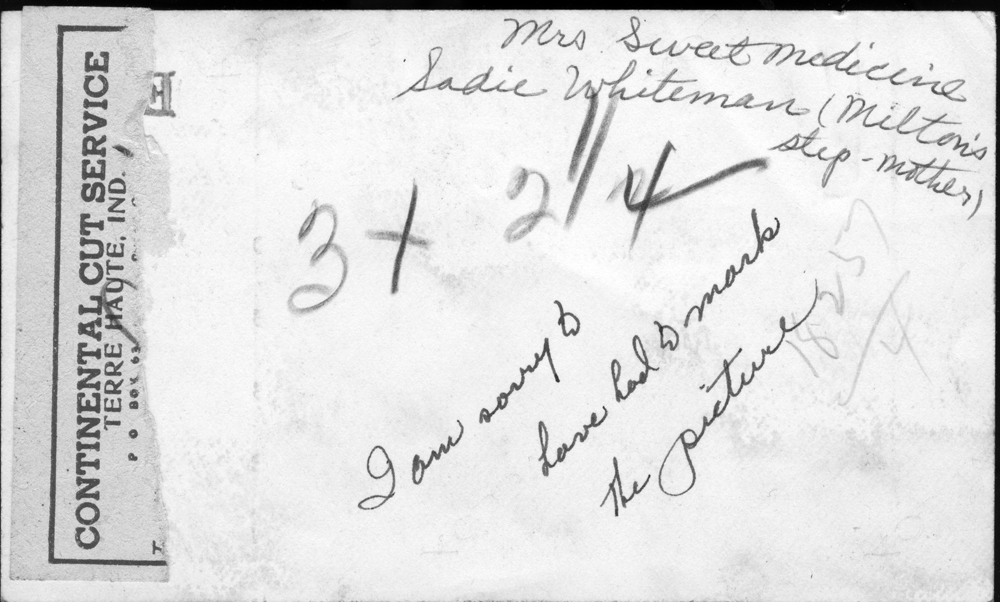 Mrs Sweet Medicine
Sadie Whiteman (Milton's
step-mother)
3 + 2 1/4
I am sorry to
have had to mark
the picture
CONTINENTAL CUT SERVICE
TERRE HAUTE, IND.
P O BOX 63
H
T